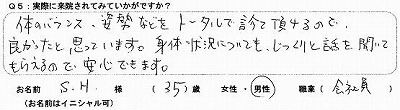 Q5:実際に来院されてみていかがですか?
体のバランス、姿勢などをトータルで診て頂けるので、
良かったと思っています。身体状況についても、じっくりと話を聞いて
もらえるので、安心できます。
お名前 S.H. 様 (35)歳 女性・男性 職業(会社員)
(お名前はイニシャル可)